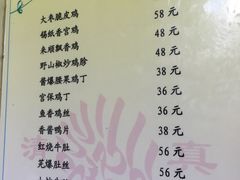 大枣脆皮鸡 58 元
锡纸香宫鸡 48 元
来顺飘香鸡 48 元
野山椒炒鸡胗 38 元
酱爆腰果鸡丁 36 元
宫保鸡丁 36 元
鱼香鸡丝 36 元
香酱鸭片 38 元
红烧牛肚 56 元
芫爆肚丝 56 元